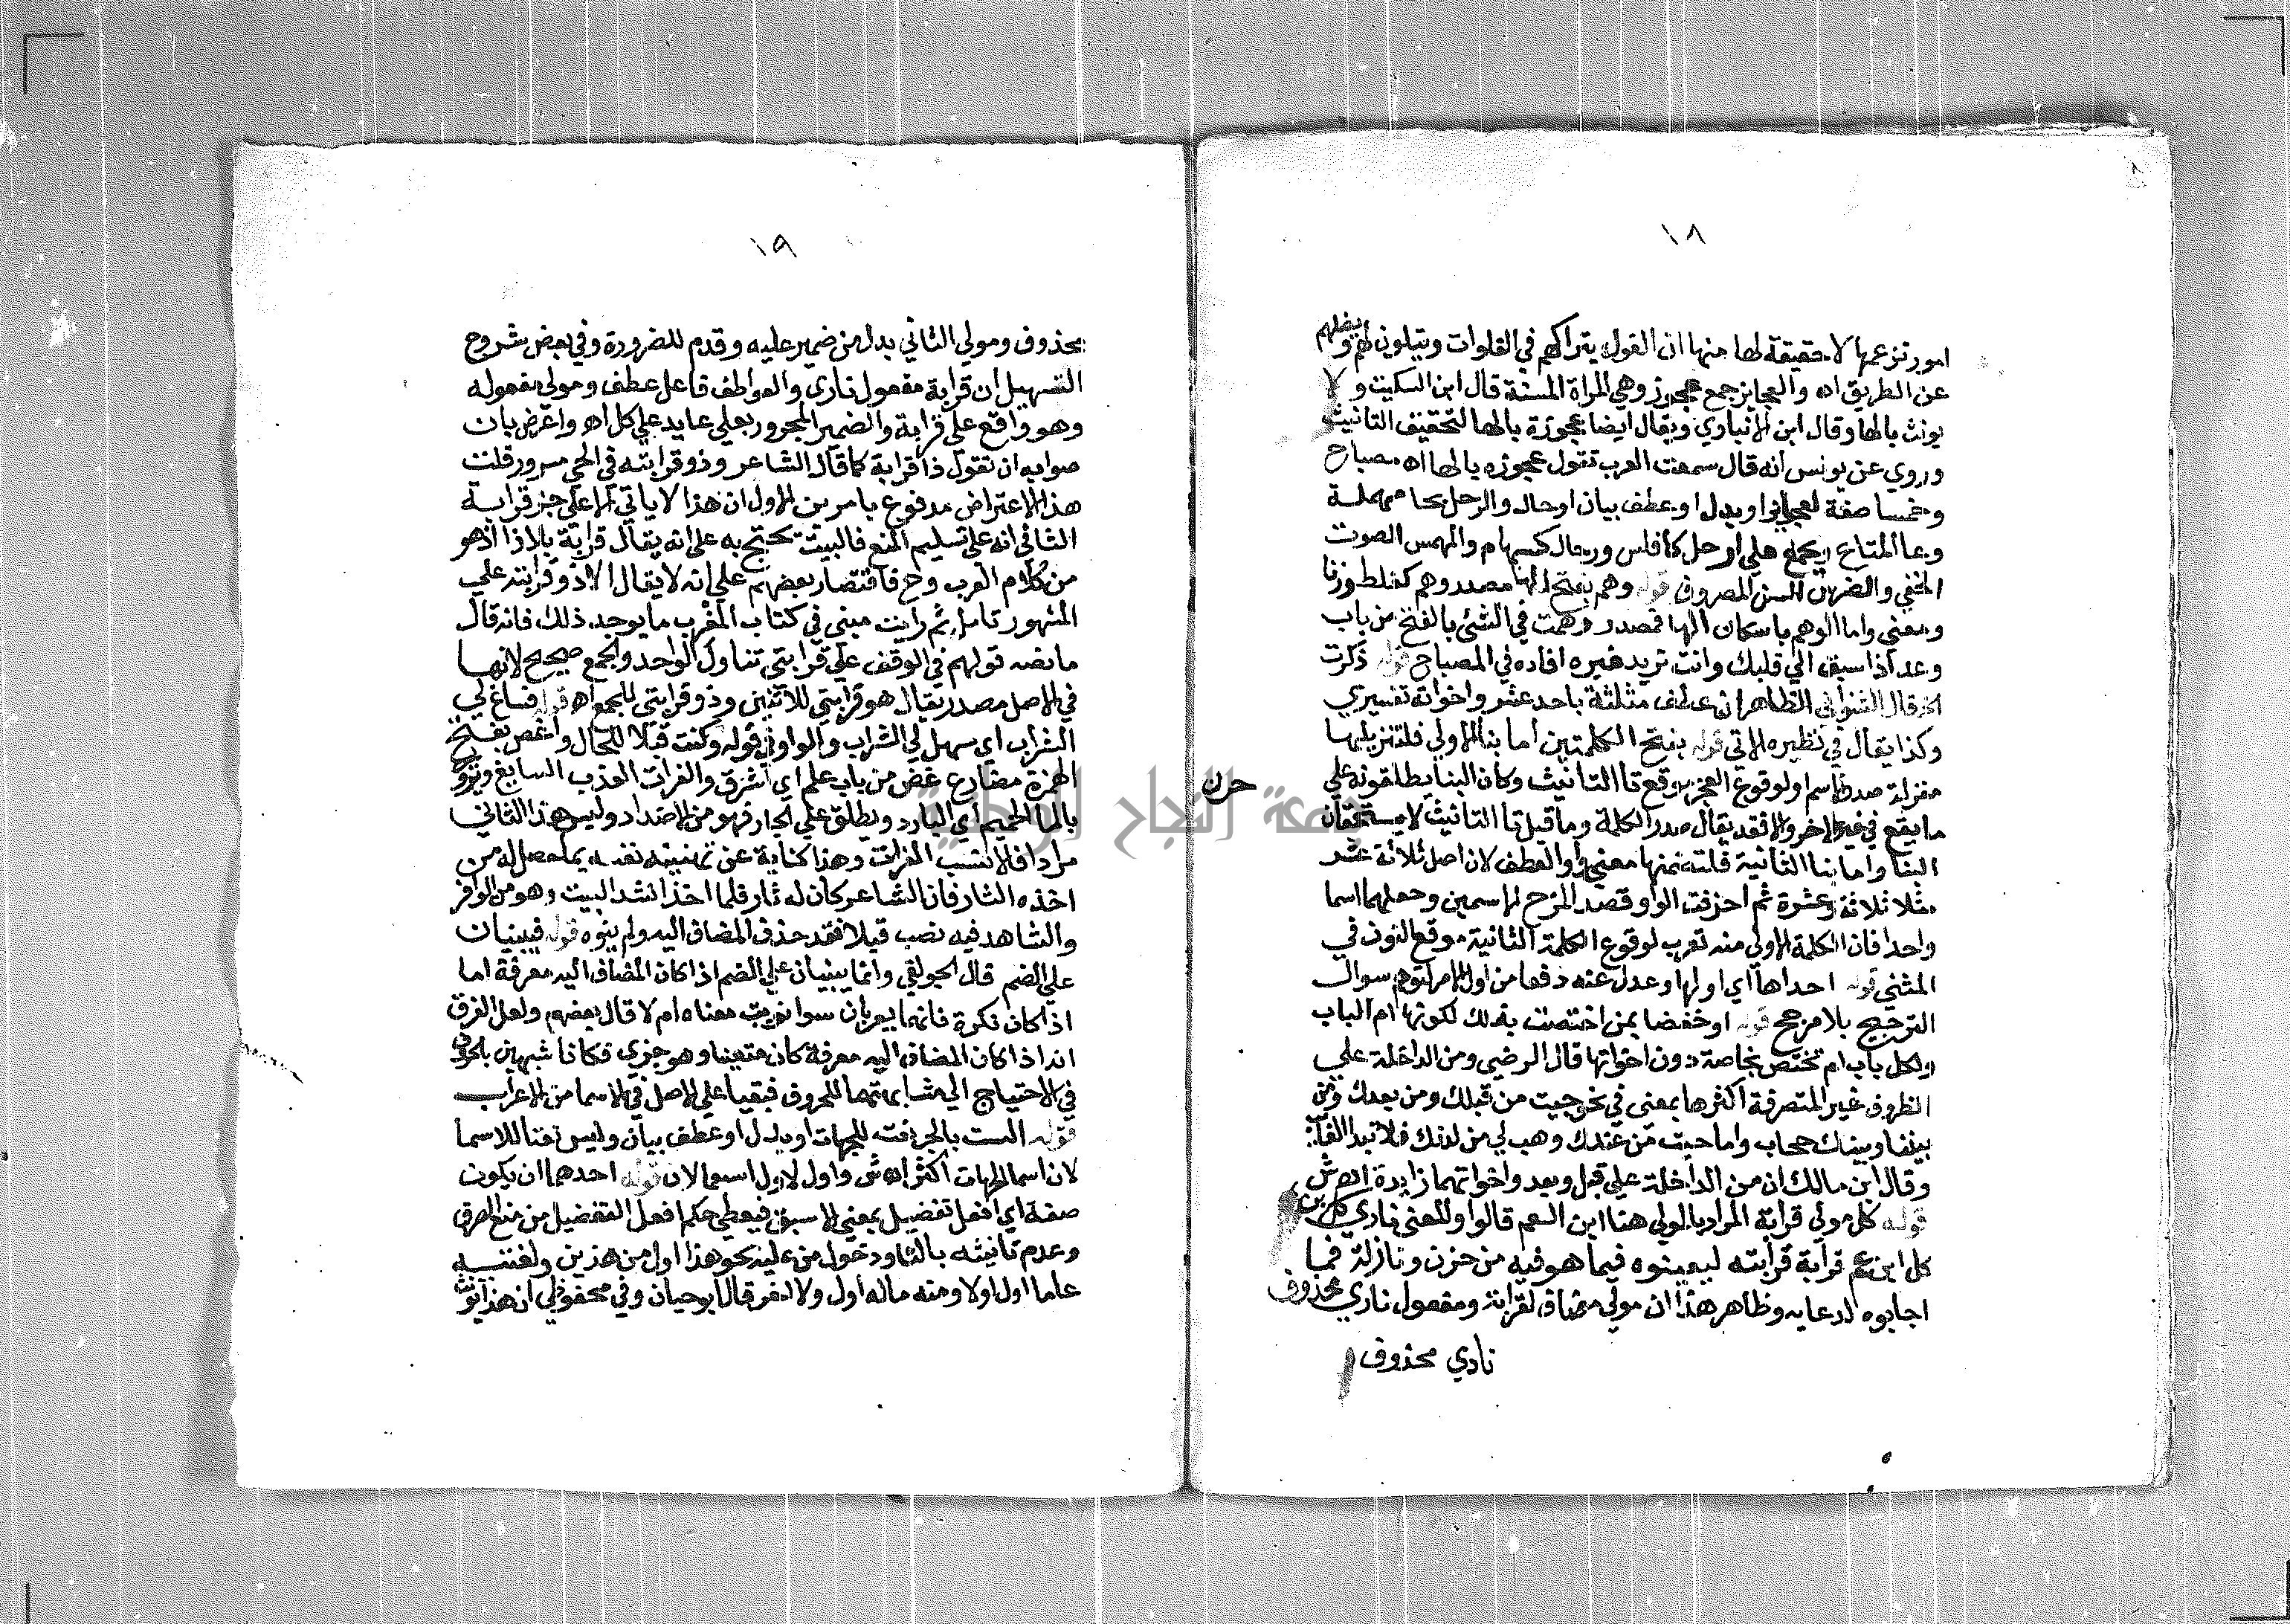 ١٨
امور تزعمها لا حقيقة لها منها ان الغول يتراكهم في الفلوات ويتلون لهم ويضلهم
عن الطريق اه والعجايز جمع عجوز وهي المراة المسنة قال ابن السكيت ولا
يونث بالها وقال ابن الانباري ويقال ايضا عجوزة بالها لتحقيق التانيث
وروي عن يونس انه قال سمعت العرب تقول عجوزه بالها اه مصباح
وخمسا صفة لعجايزا وبدل او عطف بيان او حال والرحل بحا مهملة
وعا المتاع ويجمع علي ارحل كافلس ورحال كسهام والهمس الصوت
الخفي والضرس السن المعروف قوله وهم بفتح الها مصدر وهم كغلط وزنا
ومعني واما الوهم باسكان الها فمصدر وهمت في الشئ بالفتح من باب
وعد اذا سبق الي قلبك وانت تريد غيره افاده في المصباح قوله ذكرت
الخ قال الشنواني الظاهر ان عطف مثلثة باحد عشر واخواته تفسيري
وكذا يقال في نظيره الاتي قوله بفتح الكلمتين اما بنا الاولي فلتنزيلها
منزلة صدر الاسم ولوقوع العجز موقع تا التانيث وكان البنا يطلقونه علي
ما يقع في غير الاخر والا فقد يقال صدر الكلمة وما قبل تا التانيث لا يستحقان
البنا واما بنا الثانية فلتضمنها معني واو العطف لان اصل ثلاثة عشر
مثلا ثلاثة وعشرة ثم احذفت الواو قصد المزج الاسمين وجعلهما اسما
واحدا فان الكلمة الاولي منه تعرب لوقوع الكلمة الثانية موقع النون في
المثني قوله احداها اي اولها وعدل عنه دفعا من اول الامر لتوهم سوال
الترجيح بلا مرجح قوله او خفضا بمن اختصت بذلك لكونها ام الباب
ولكل باب ام تختص بخاصة دون اخواتها قال الرضي ومن الداخلة علي
الظروف غير المتصرفة اكثرها بمعني في نحو جيت من قبلك ومن بعدك ومن
بيننا وبينك حجاب واما جيت من عندك وهب لي من لدنك فلابتدا الغاية
وقال ابن مالك ان من الداخلة علي قبل وبعد واخواتهما زايدة اه ش
قوله كل مولي قرابة المراد بالمولي هنا ابن العم قالوا والمعني نادي كل بن
كل ابن عم قرابة قرابته ليعينوه فيما هو فيه من حزن ونازلة فما
اجابوه لدعايه وظاهر هذا ان مولي مضاف لقرابة ومفعول نادي محذوف
نادي محذوف
حزن
١٩
محذوف ومولي الثاني بدل من ضمير عليه وقدم للضرورة وفي بعض شروح
التسهيل ان قرابة مفعول نادي والعواطف فاعل عطف ومولي مفعوله
وهو واقع علي قرابة والضمير المجرور بعلي عايد علي كل اه واعرض بان
صوابه ان تقول ذا قرابة كما قال الشاعر وذو قرابته في الحي مسرور قلت
هذا الاعتراض مدفوع بامرين الاول ان هذا لا ياتي الا علي جر قرابة
الثاني انه علي تسليم المنع فالبيت يحتج به علي انه يقال قرابة بلا ذا اذ هو
من كلام العرب وح فاقتصار بعضهم علي انه لا يقال الا ذو قرابته علي
المشهور تامل ثم رايت مبني في كتاب المغرب ما يوجد ذلك فانه قال
ما نصه قولهم في الوقف علي قرابتي تناول الواحد والجمع صحيح لانها
في الاصل مصدر يقال هو قرابتي للاثنين وذو قرابتي للجمع اه قوله فساغ لي
الشراب اي سهل لي الشراب والواو في قوله وكنت قبلا للحال واغص بفتح
الهمزة مضارع غص من باب علم اي اشرق والفرات العذب السايغ ويروي
بالما الحميم اي البارد ويطلق علي الحار فهو من الاضداد وليس هذا الثاني
مرادا فلا نسب الفرات وهذا كناية عن تهنيته نفسه بما حصل له من
اخذه الثار فان الشاعر كان له ثار فلما اخذ انشد البيت وهو من الوافر
والشاهد فيه نصب قبلا فقد حذف المضاف اليه ولم ينوه قوله فيبنيان
علي الضم قال الحوفي وانما يبنيان علي الضم اذا كان المضاف اليه معرفة اما
اذا كان نكرة فانهما يعربان سوا نويت معناه ام لا قال بعضهم ولعل الفرق
انه اذا كان المضاف اليه معرفة كان متعينا وهو جزي فكانا شبهين بالحروف
في الاحتياج الي مشابهتهما للحروف فبقيا علي الاصل في الاسما من الاعراب
قوله الست بالجر نعت للجهات او بدل او عطف بيان وليس نعتا للاسما
لان اسما الجهات اكثر اه ش واول لاول اسيعمالان قوله احدهما ان يكون
صفة اي افعل تفضيل بمعني الاسبق فيعطي حكم افعل التفضيل من منع الصرف
وعدم تانيثه بالتا ودخول من عليه نحو هذا اول من هذين ولقيتـــه
عاما اول اولا ومنه ماله اول ولا اخر قال ابو حيان وفي محفوظي ان هذا يونث